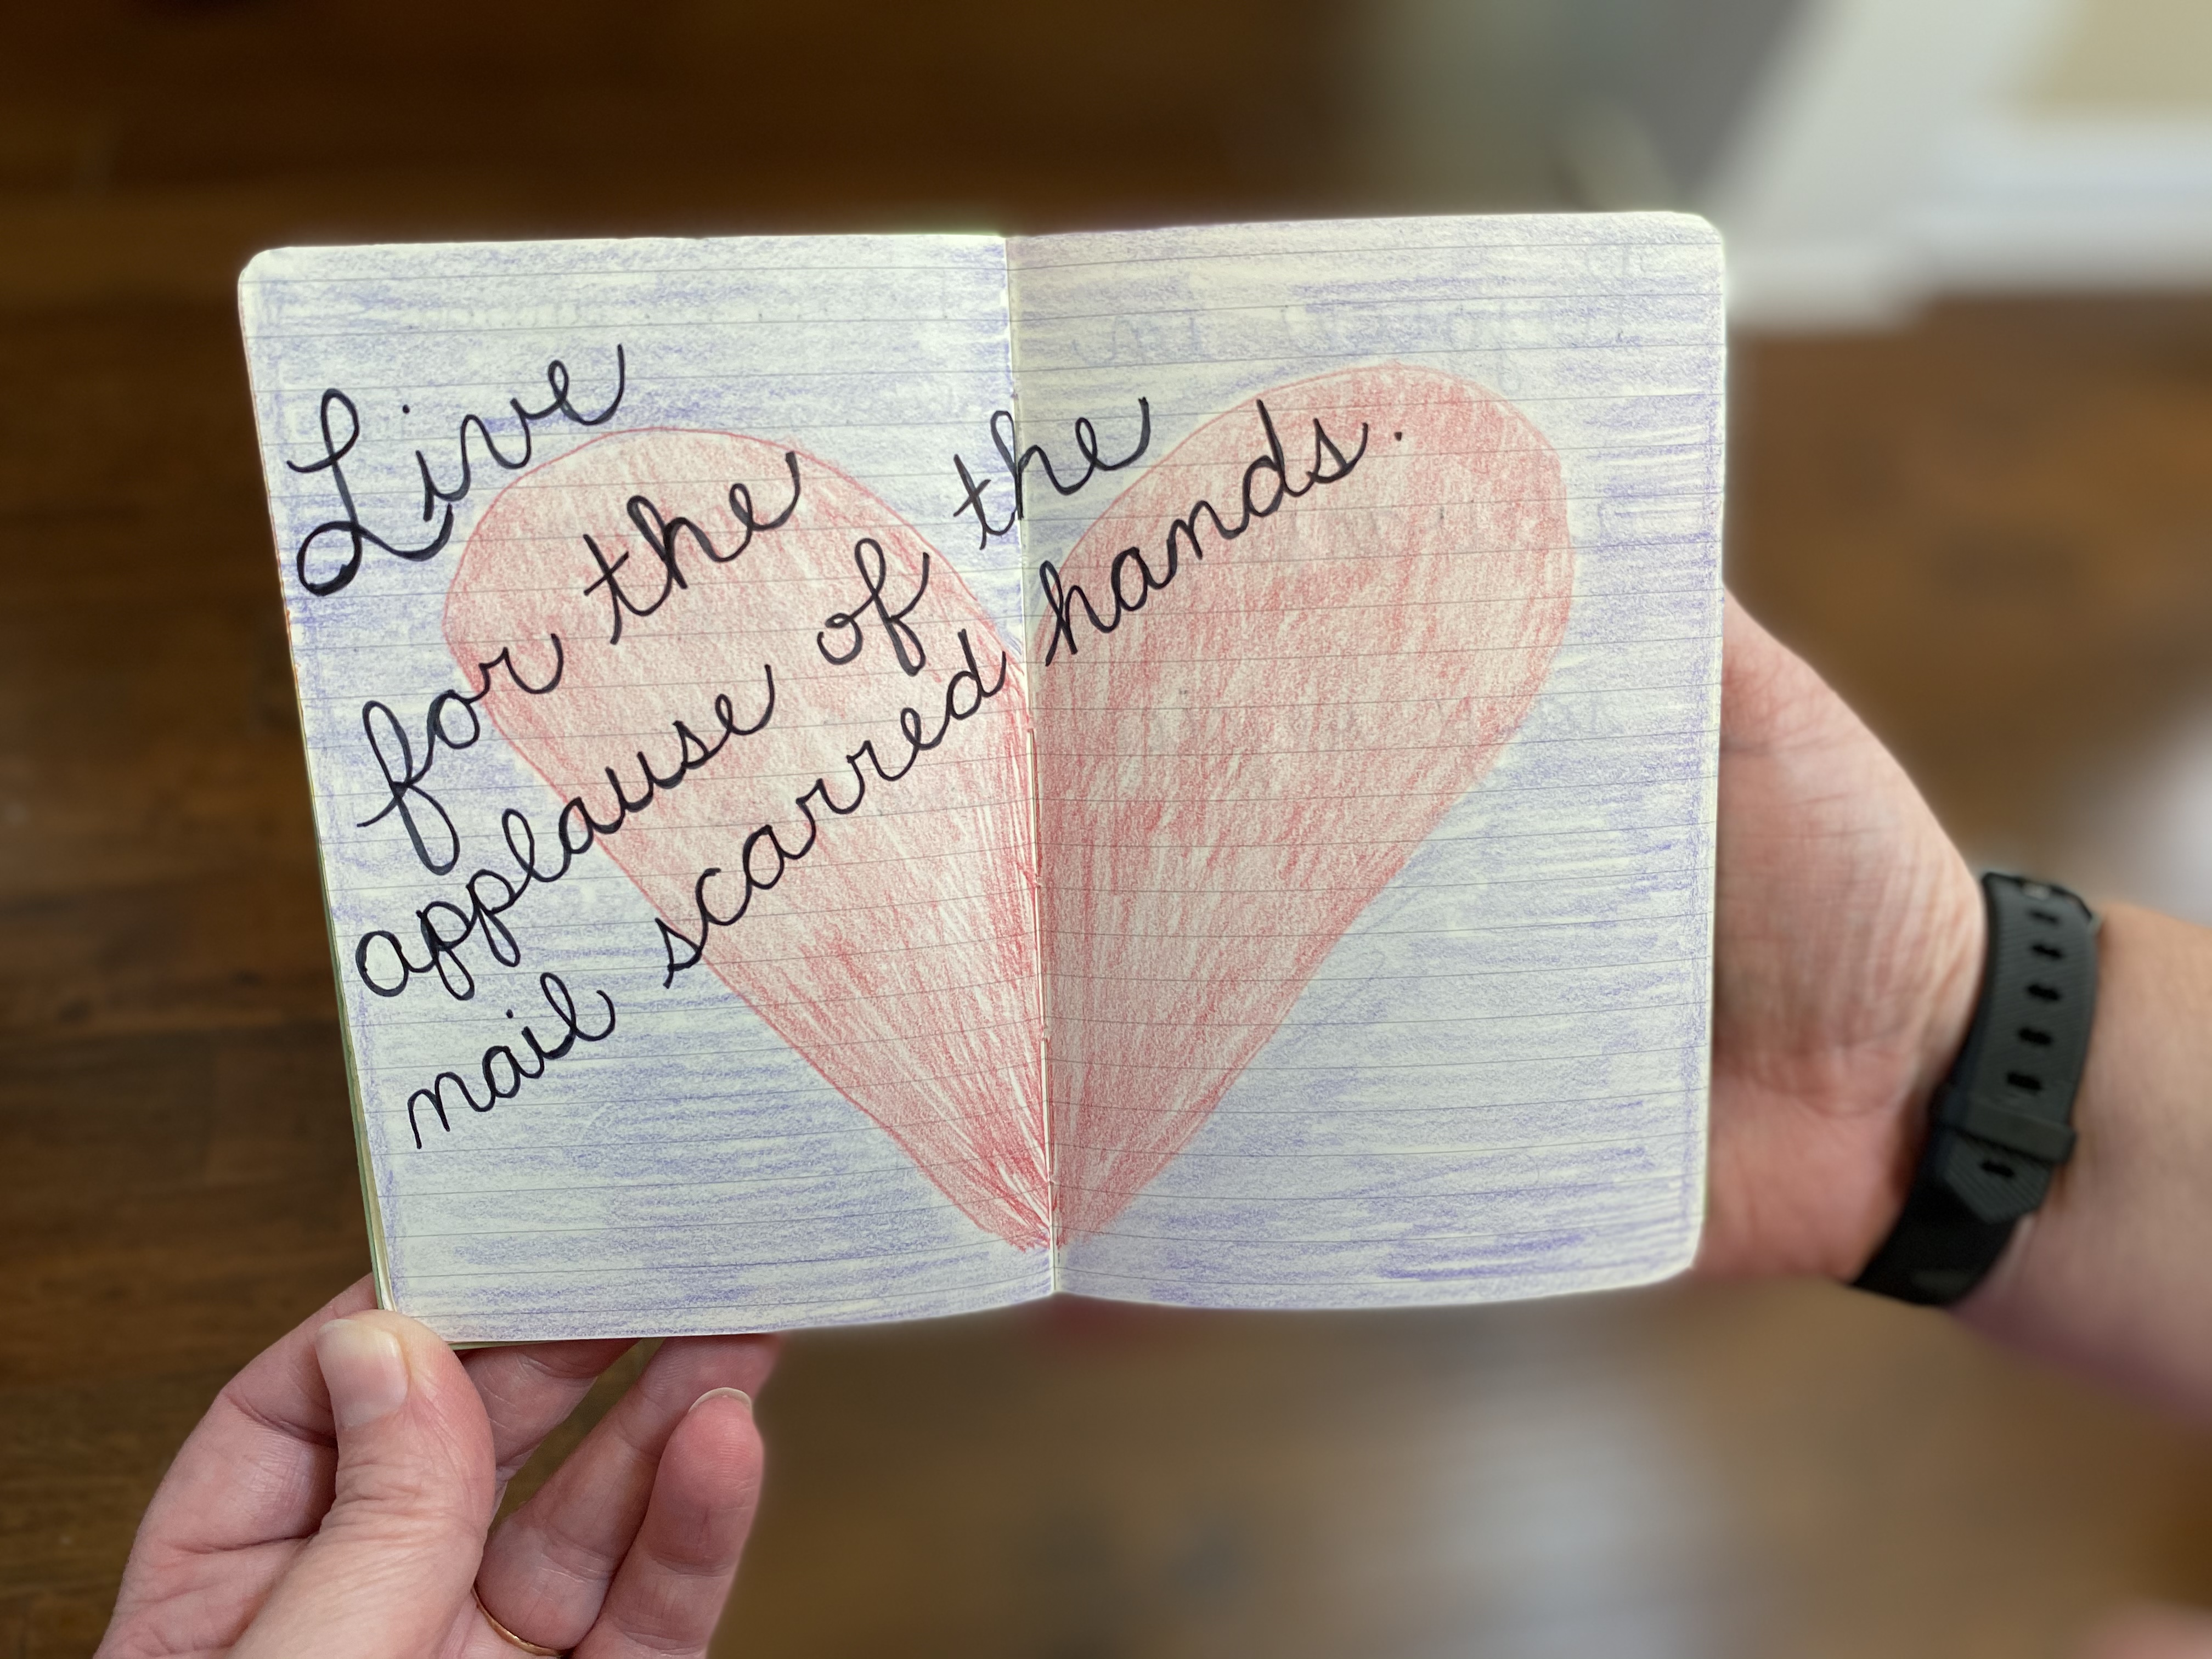 Live
for the
applause of the
nail scarred hands.